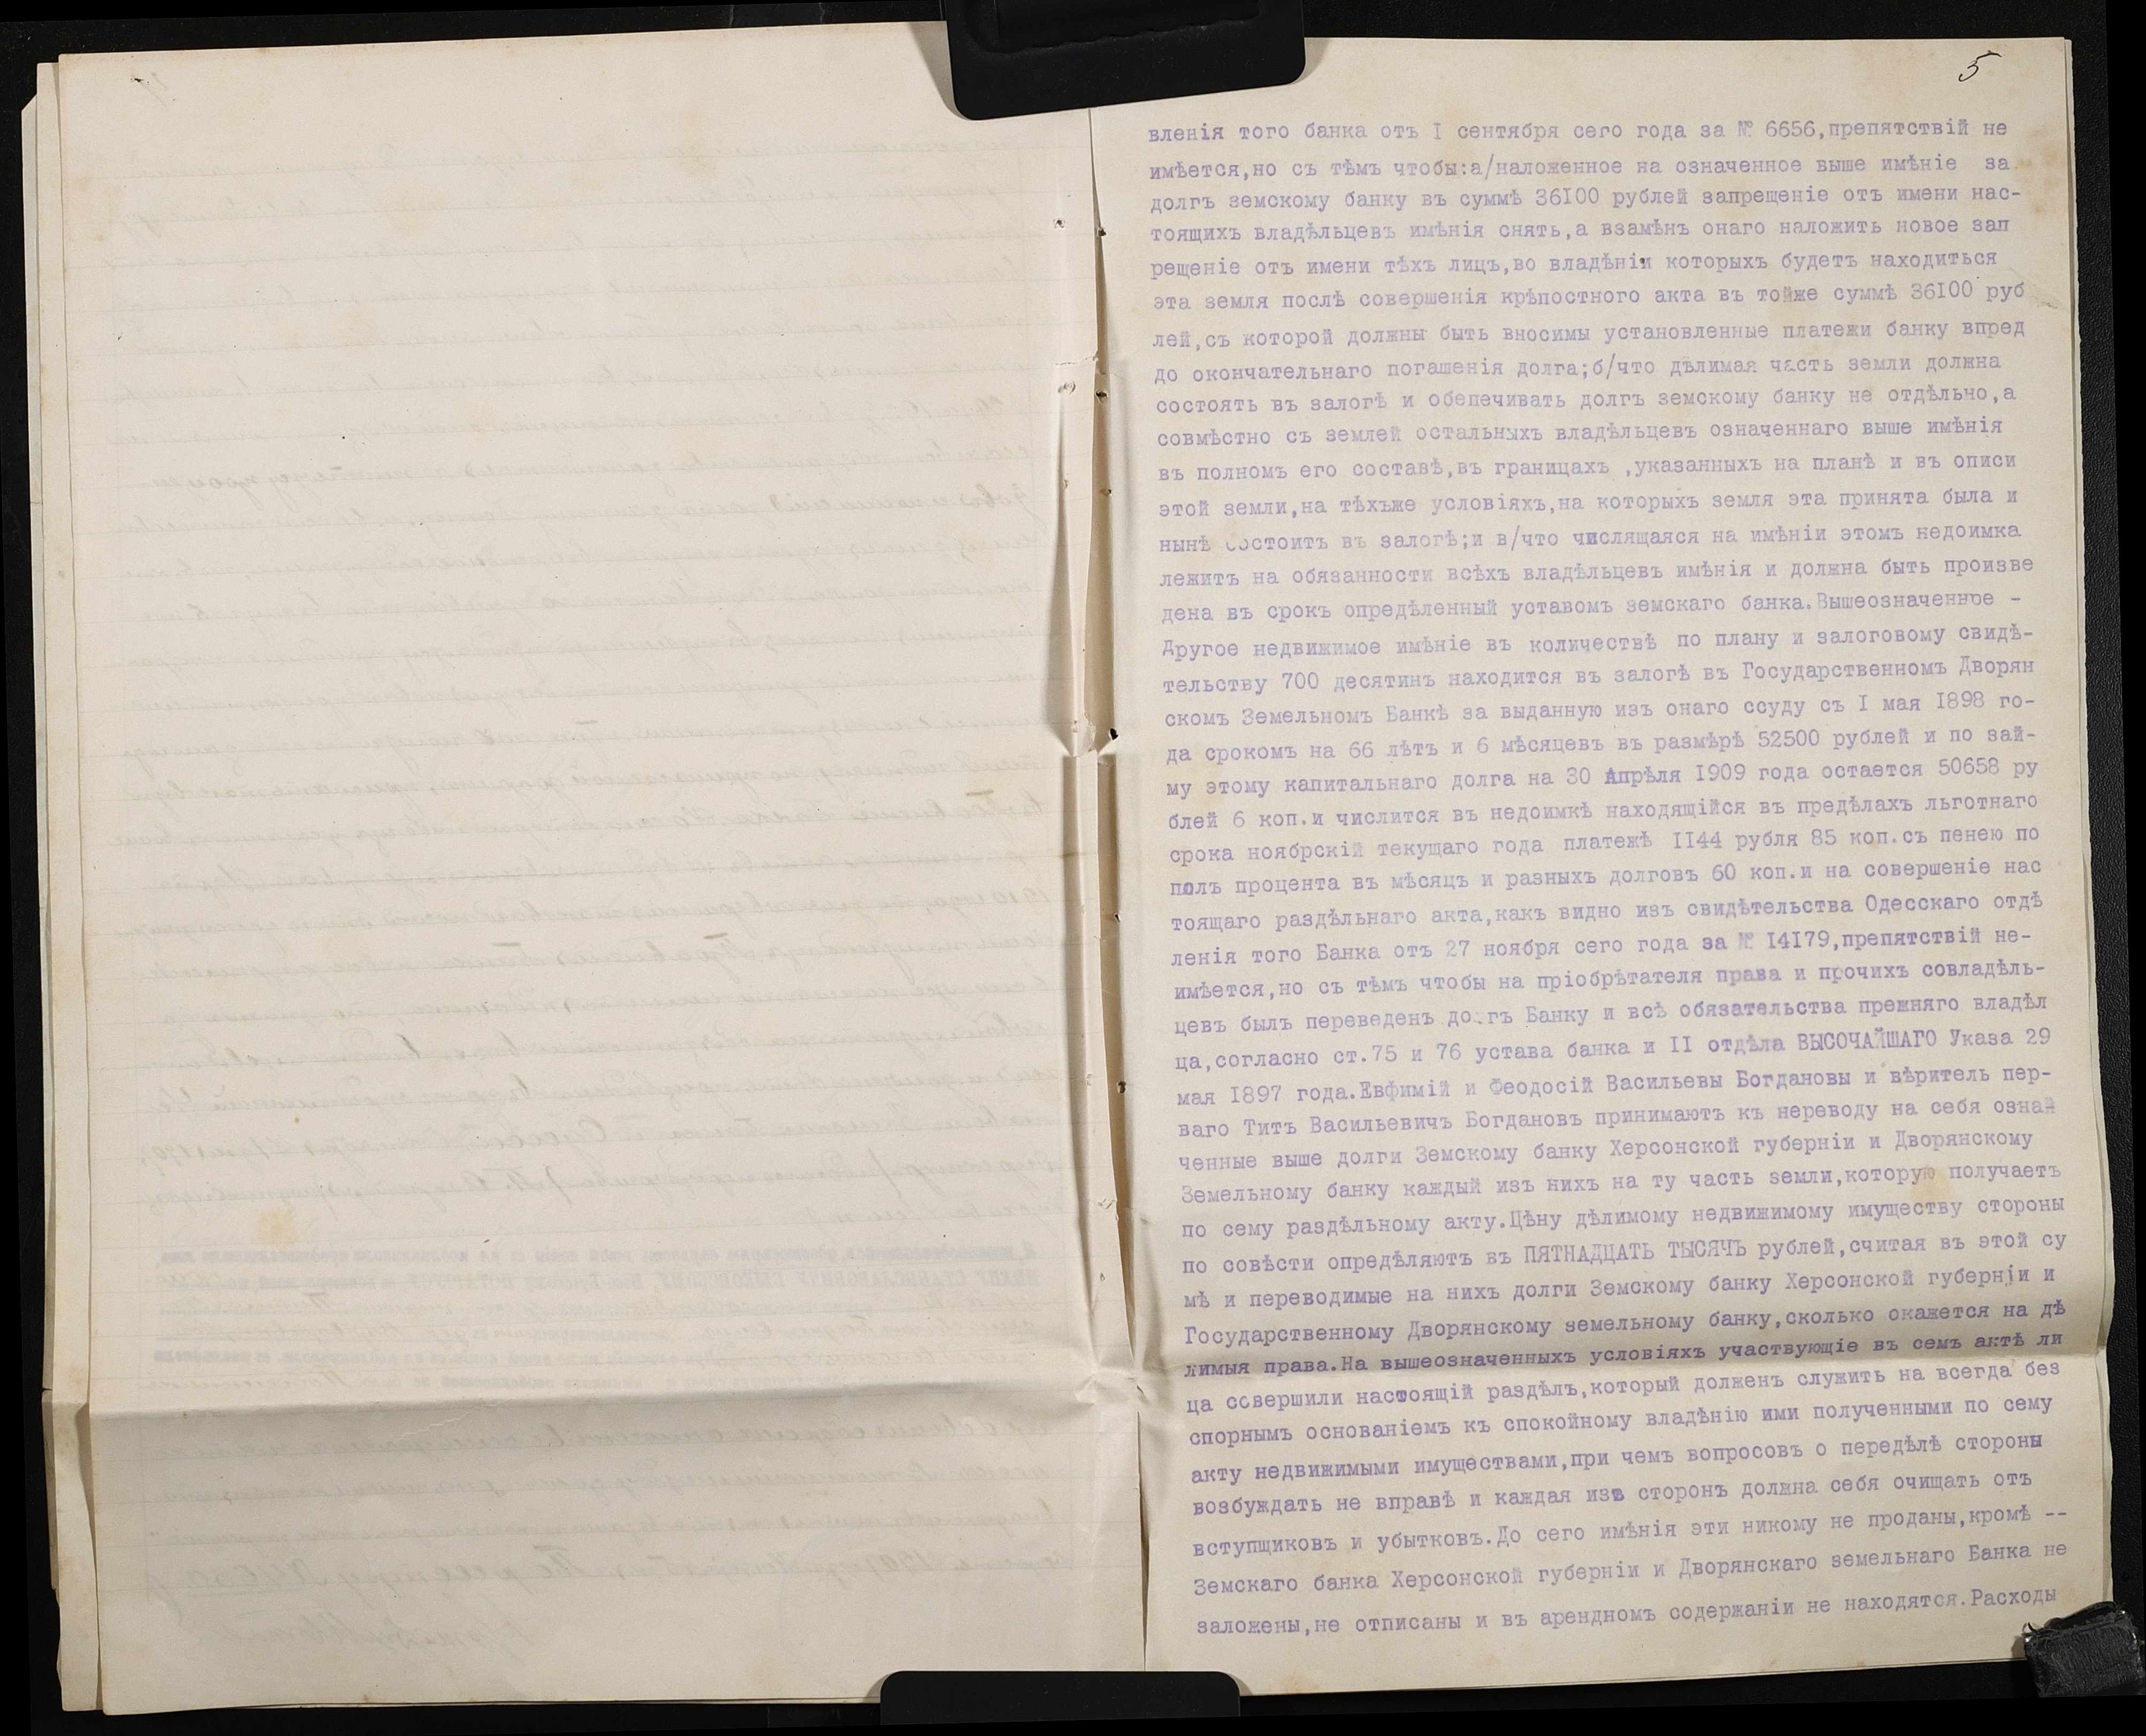 5
вленія того банка отъ I сентября сего года за № 6656,препятствій не
имѣется,но съ тѣмъ чтобы:а/наложенное на означенное выше имѣніе за
долгъ земскому банку въ суммѣ 36I00 рублей запрещеніе отъ имени нас-
тоящихъ владѣльцевъ имѣнія снять,а взамѣнъ онаго наложить новое зап
рещеніе отъ имени тѣхъ лицъ,во владѣніи которыхъ будетъ находиться
эта земля послѣ совершенія крѣпостного акта въ тойже суммѣ 36I00 руб
лей,съ которой должны быть вносимы установленные платежи банку впред
до окончательнаго погашенія долга;б/что дѣлимая часть земли должна
состоять въ залогѣ и обепечивать долгъ земскому банку не отдѣльно,а
совмѣстно съ землей остальныхъ владѣльцевъ означеннаго выше имѣнія
въ полномъ его составѣ,въ границахъ ,указанныхъ на планѣ и въ описи
этой земли,на тѣхъже условіяхъ,на которыхъ земля эта принята была и
нынѣ состоитъ въ залогѣ;и в/что числящаяся на имѣніи этомъ недоимка
лежитъ на обязанности всѣхъ владѣльцевъ имѣнія и должна быть произве
дена въ срокъ опредѣленный уставомъ земскаго банка.Вышеозначенное -
Другое недвижимое имѣніе въ количествѣ по плану и залоговому свидѣ-
тельству 700 десятинъ находится въ залогѣ въ Государственномъ Дворян
скомъ Земельномъ Банкѣ за выданную изъ онаго ссуду съ I мая I898 го-
да срокомъ на 66 лѣтъ и 6 мѣсяцевъ въ размѣрѣ 52500 рублей и по зай-
му этому капитальнаго долга на 30 Апрѣля I909 года остается 50658 ру
блей 6 коп.и числится въ недоимкѣ находящійся въ предѣлахъ льготнаго
срока ноябрскій текущаго года платежѣ II44 рубля 85 коп.съ пенею по
полъ процента въ мѣсяцъ и разныхъ долговъ 60 коп.и на совершеніе нас
тоящаго раздѣльнаго акта,какъ видно изъ свидѣтельства Одесскаго отдѣ
ленія того Банка отъ 27 ноября сего года за № I4I79,препятствій не-
имѣется,но съ тѣмъ чтобы на пріобрѣтателя права и прочихъ совладѣль-
цевъ былъ переведенъ долгъ Банку и всѣ обязательства прежняго владѣл
ца,согласно ст.75 и 76 устава банка и II отдѣла ВЫСОЧАЙШАГО Указа 29
мая I897 года.Евфимій и Феодосій Васильевы Богдановы и вѣритель пер-
ваго Титъ Васильевичъ Богдановъ принимаютъ къ нереводу на себя озна
ченные выше долги Земскому банку Херсонской губерніи и Дворянскому
Земельному банку каждый изъ нихъ на ту часть земли,которую получаетъ
по сему раздѣльному акту.Цѣну дѣлимому недвижимому имуществу стороны
по совѣсти опредѣляютъ въ ПЯТНАДЦАТЬ ТЫСЯЧЪ рублей,считая въ этой су
мѣ и переводимые на нихъ долги Земскому банку Херсонской губерніи и
Государственному Дворянскому земельному банку,сколько окажется на дѣ
лимыя права.На вышеозначенныхъ условіяхъ участвующіе въ семъ актѣ ли
ца совершили настоящій раздѣлъ,который долженъ служить на всегда без
спорнымъ основаніемъ къ спокойному владѣнію ими полученными по сему
акту недвижимыми имуществами,при чемъ вопросовъ о передѣлѣ стороны
возбуждать не вправѣ и каждая изъ сторонъ должна себя очищать отъ
вступщиковъ и убытковъ.До сего имѣнія эти никому не проданы,кромѣ --
Земскаго банка Херсонской губерніи и Дворянскаго земельнаго Банка не
заложены,не отписаны и въ арендномъ содержаніи не находятся.Расходы